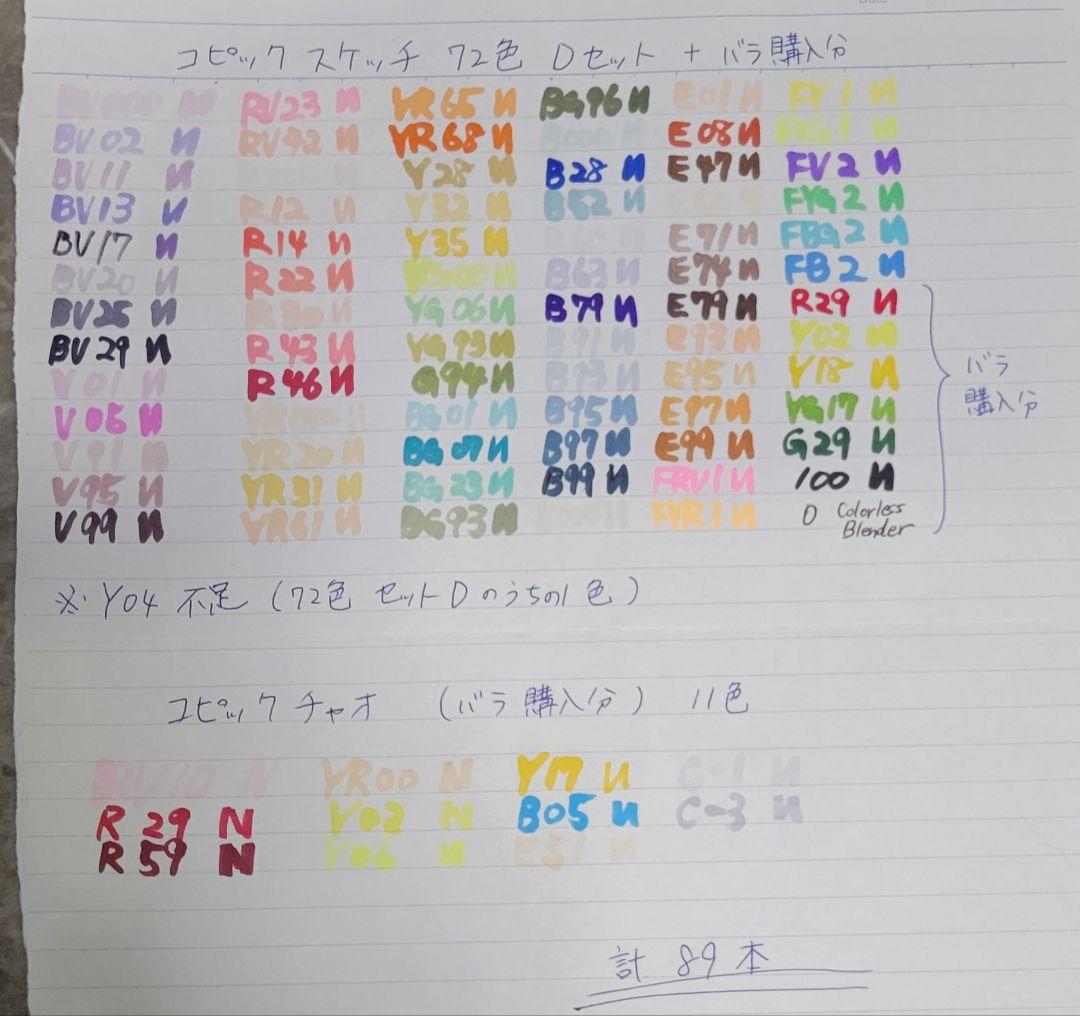 コピック スケッチ 72色 Dセット + バラ購入分
BV000 N RV23 N YR65 N BG96 N E01 N FY1 N
BV02 N RV42 N YR68 N B000 N E08 N FYG1 N
BV11 N Y28 N B28 N E47 N FV2 N
BV13 N R12 N Y32 N B52 N FYG2 N
BV17 N R14 N Y35 N E71 N FBG2 N
BV20 N R22 N B63 N E74 N FB2 N
BV25 N R30 N YG06 N B79 N E79 N R29 N
BV29 N R43 N YG93 N B91 N E93 N Y02 N
V01 N R46 N G94 N B93 N E95 N Y18 N
バラ
購入分
V05 N BG01 N B95 N E97 N YG17 N
V91 N YR20 N BG07 N B97 N E99 N G29 N
V95 N YR31 N BG23 N B99 N FRV1 N 100 N
V99 N YR61 N BG93 N FYR1 N 0 Colorless
Blender
※ Y04 不足 (72色 セットDのうちの1色)
コピック チャオ (バラ購入分) 11色
RV10 N YR00 N Y17 N C-1 N
R 29 N Y02 N B05 N C-3 N
R 59 N Y06 N E51 N
計 89本